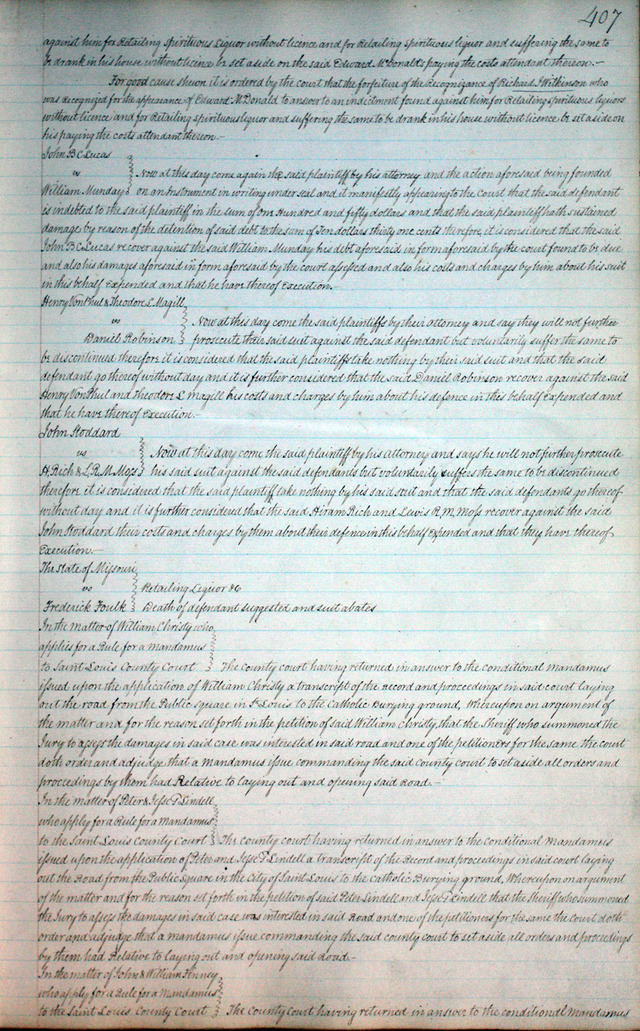 407
against him for Retailing Spirituous Liquor without licence and for Retailing spirituous liquor and suffering the same to
be drank in his house without licence be set aside on the said Edward McDonalds paying the costs attendant thereon.—
For good cause shewn it is ordered by the court that the forfeiture of the Recognizance of Richard Wilkinson who
was recognized for the appearance of Edward McDonald to answer to an indictment found against him for Retailing spirituous liquors
without licence and for Retailing spirituous liquor and suffering the same to be drank in his house without licence be set aside on
his paying the costs attendant thereon.—
John B C Lucas
vs Now at this day come again the said plaintiff by his attorney and the action aforesaid being founded
William Munday on an Instrument in writing under seal and it manifestly appearing to the Court that the said defendant
is indebted to the said plaintiff in the sum of one hundred and fifty dollars and that the said plaintiff hath sustained
damage by reason of the detention of said debt to the sum of Ten dollars thirty one cents therefore it is considered that the said
John B C Lucas recover against the said William Munday his debt aforesaid in form aforesaid by the court found to be due
and also his damages aforesaid in form aforesaid by the court assessed and also his costs and charges by him about his suit
in this behalf expended and that he have thereof Execution.
Henry Von Phul & Theodore L. Magill
vs Now at this day come the said plaintiffs by their attorney and say they will not further
Daniel Robinson prosecute their said suit against the said defendant but voluntarily suffer the same to
be discontinued therefore it is considered that the said plaintiffs take nothing by their said suit and that the said
defendant go thereof without day and it is further considered that the said Daniel Robinson recover against the said
Henry Von Phul and Theodore L Magill his costs and charges by him about his defence in this behalf expended and
that he have thereof Execution.—
John Stoddard
vs Now at this day come the said plaintiff by his attorney and says he will not further prosecute
H Rich & L. R. M. Moss his said suit against the said defendants but voluntarily suffers the same to be discontinued
therefore it is considered that the said plaintiff take nothing by his said suit and that the said defendants go thereof
without day and it is further considered that the said Hiram Rich and Lewis R. M. Moss recover against the said
John Stoddard their costs and charges by them about their defence in this behalf expended and that they have thereof
Execution.—
The State of Missouri
vs Retailing Liquor &c
Frederick Foulk Death of defendant suggested and suit abates
In the matter of William Christy who
applies for a Rule for a mandamus
to Saint Louis County Court The County court having returned in answer to the conditional mandamus
issued upon the application of William Christy a transcript of the Record and proceedings in said court laying
out the road from the Public square in St Louis to the Catholic Burying ground, whereupon on argument of
the matter and for the reason set forth in the petition of said William Christy, that the Sheriff who summoned the
Jury to assess the damages in said case was interested in said road and one of the petitioners for the same, the court
doth order and adjudge that a mandamus issue commanding the said county court to set aside all orders and
proceedings by them had Relative to laying out and opening said Road.—
In the matter of Peter & Jesse G Lindell
who apply for a Rule for a mandamus
to the Saint Louis County Court The county court having returned in answer to the conditional Mandamus
issued upon the application of Peter and Jesse G Lindell a transcript of the Record and proceedings in said court laying
out the Road from the Public Square in the City of Saint Louis to the Catholic Burying ground, Whereupon on argument
of the matter and for the reason set forth in the petition of said Peter Lindell and Jesse G Lindell that the Sheriff who summoned
the Jury to assess the damages in said case was interested in said Road and one of the petitioners for the same the court doth
order and adjudge that a mandamus issue commanding the said county court to set aside all orders and proceedings
by them had Relative to laying out and opening said Road.—
In the matter of John & William Finney
who apply for a Rule for a Mandamus
to the Saint Louis County Court The County Court having returned in answer to the conditional Mandamus